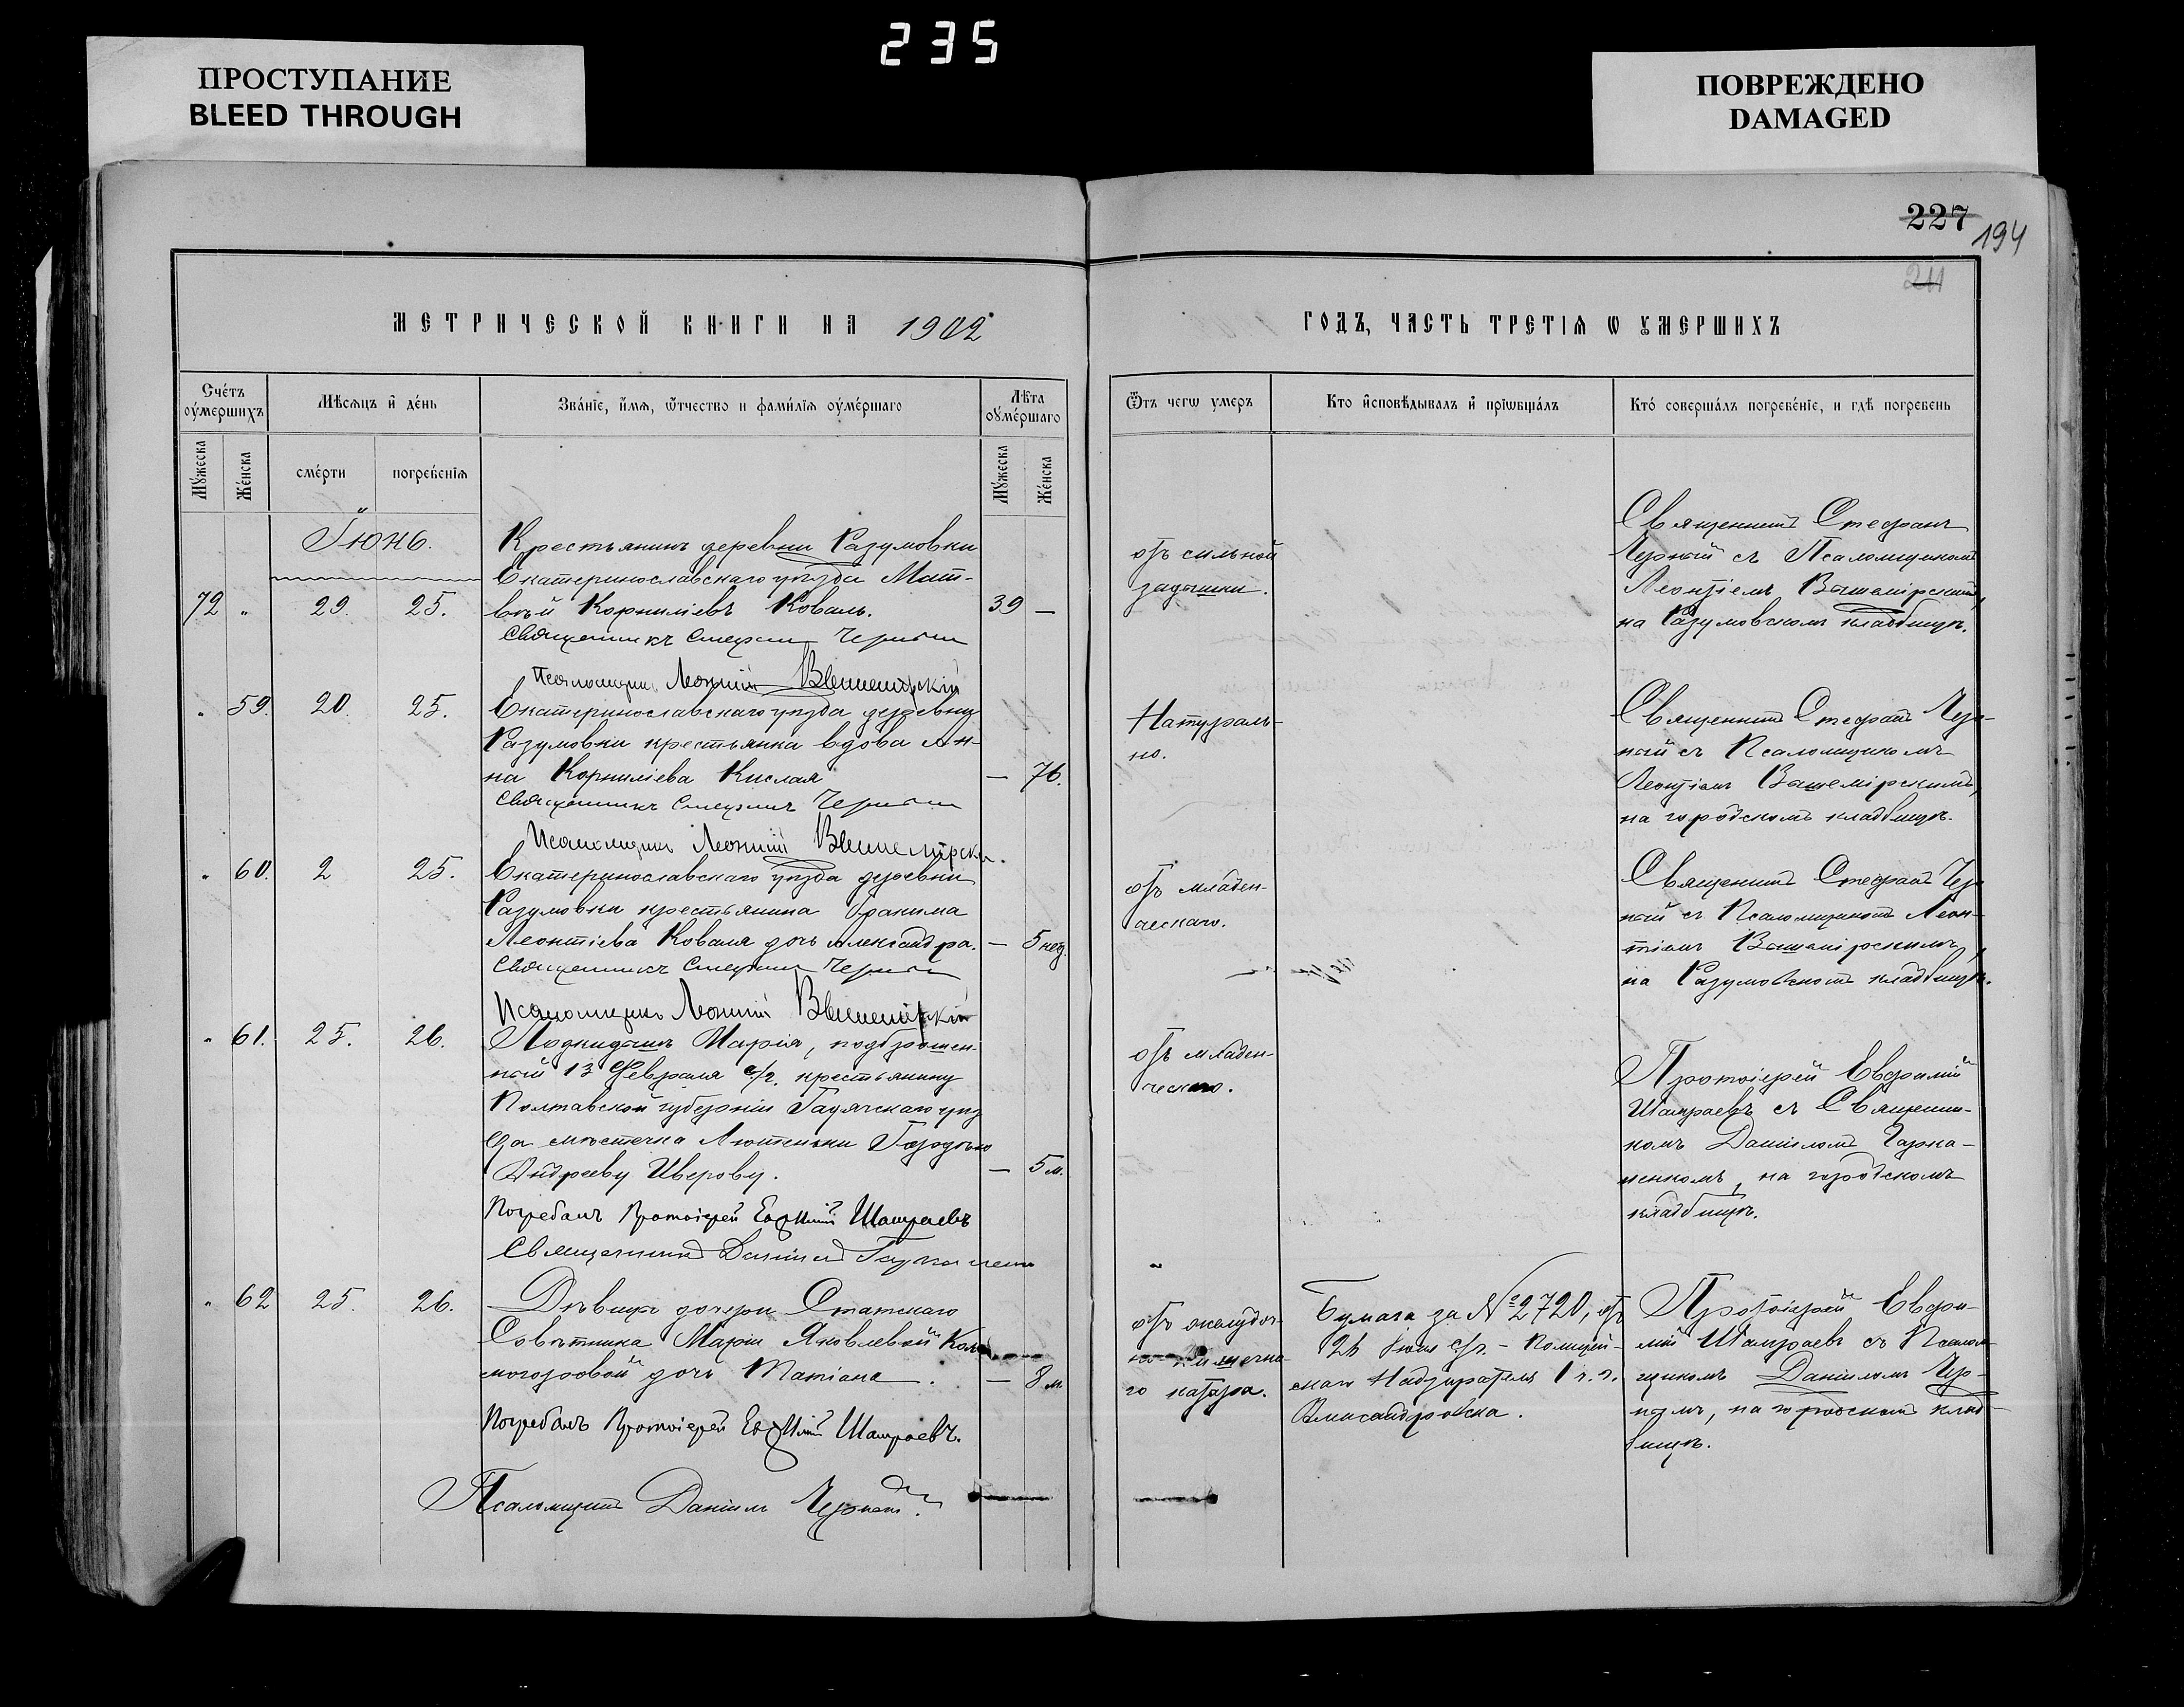 235
ПРОСТУПАНИЕ
BLEED THROUGH
ПОВРЕЖДЕНО
DAMAGED
227
194
211
МЕТРИЧЕСКОЙ КНИГИ НА 1902
ГОДЪ, ЧАСТЬ ТРЕТІЯ Ѡ УМЕРШИХЪ
Сче́тъ ᲂу҆́мершихъ
Мѣ́сяцъ и҆ де́нь
Зва́ніе, и҆́мя, ѿтчество и фами́лія ᲂу҆ме́ршаго
Лѣ́та ᲂу҆ме́ршаго
Ѿъ чегѡ умеръ
Кто и҆сповѣ́дывалъ и҆ прїѡбща́лъ
Кто́ соверша́лъ погребе́ніе, и гдѣ̀ погребенъ
Му́жеска
Же́нска
сме́рти
погребе́нія
Му́жеска
Же́нска
Іюнь.
Крестьянинъ деревни Разумовки
Екатеринославскаго уѣзда Мат-
72 " 29. 25. вѣй Корниліевъ Коваль. 39 —
Священникъ Стефанъ Черный
Псаломщикъ Леонтій Вышемірскій
отъ сильной
задышки.
Священникъ Стефанъ
Черный съ Псаломщикомъ
Леонтіемъ Вышемірскимъ,
на Разумовскомъ кладбищѣ.
" 59. 20. 25. Екатеринославскаго уѣзда деревни
Разумовки крестьянка вдова Ан-
на Корниліева Кислая — 76.
Священникъ Стефанъ Черный
Псаломщикъ Леонтій Вышемірскі.
Натураль-
но.
Священникъ Стефанъ Чер-
ный съ Псаломщикомъ
Леонтіемъ Вышемірскимъ,
на городскомъ кладбищѣ.
" 60. 2 25. Екатеринославскаго уѣзда деревни
Разумовки крестьянина
Леонтіева Коваля дочь Александра. — 5 нед.
Священникъ Стефанъ Черный
Псаломщикъ Леонтій Вышемірскій
отъ младен-
ческаго.
Священникъ Стефанъ Чер
ный съ Псаломщикомъ Леон-
тіемъ Вышемірскимъ,
на Разумовскомъ кладбищѣ.
" 61. 25. 26. Подкидышъ Марія, подброшен-
ный 13 Февраля с/г. крестьянину
Полтавской губерніи Гадячскаго уѣз
да мѣстечка Лютеньки
Андрееву Иверову. — 5 м.
Погребалъ Протоіерей Евфимій Шамраевъ
Священникъ Даніилъ
отъ младен-
ческаго.
Протоіерей Евфимій
Шамраевъ съ Священни-
комъ Даніиломъ
на городскомъ
кладбищѣ.
" 62 25. 26. Дѣвицы дочери Статскаго
Совѣтника Маріи Яковлевой Кол
могоровой дочь Татіана. — 8 м.
Погребалъ Протоіерей Евфимій Шамраевъ.
Псаломщикъ Даніилъ
отъ желудоч-
но-кишечна-
го катара.
Бумага за № 2720, отъ
26 Іюня с/г. – Полицей-
скаго Надзирателя 1 ч. г.
Александровска.
Протоіерей Евфи-
мій Шамраевъ съ Псалом-
щикомъ Даніиломъ Чер-
на городскомъ клад-
бищѣ.